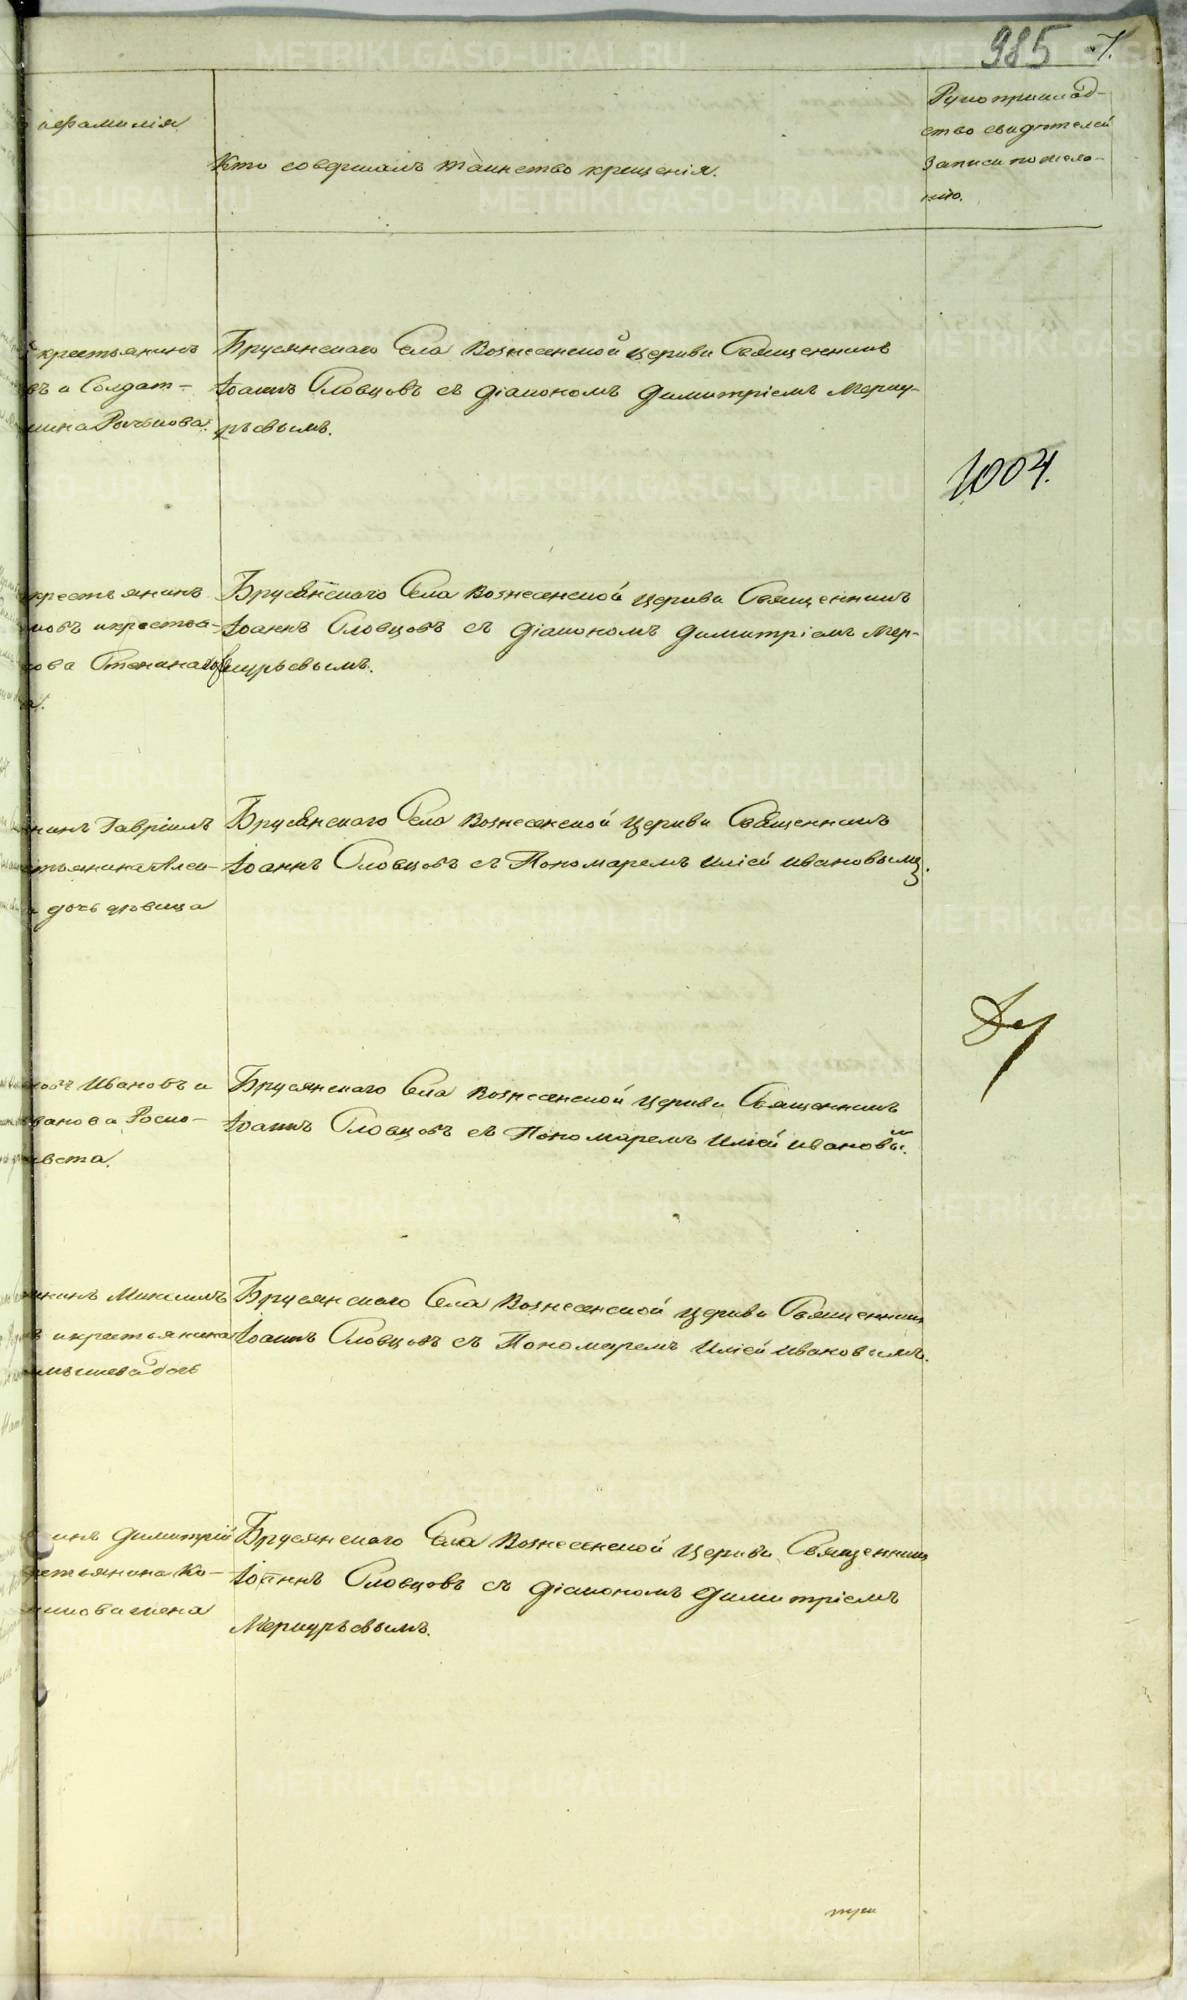 985 7.
и фамилія
Кто совершалъ таинство крещенія.
Рукоприклад-
ство свидѣтелей
записи по жела-
нію.
крестьянинъ
въ и Солдат-
Брусянскаго Села Вознесенской церкви Священникъ
Іоаннъ Словцовъ съ діакономъ Димитріемъ Мерку-
рьевымъ.
1004.
крестьянинъ
новъ и крестья-
Брусянскаго Села Вознесенской церкви Священникъ
Іоаннъ Словцовъ съ діакономъ Димитріемъ Мер-
курьевымъ.
нинъ Гавріилъ
стьянина Алек-
дочь дѣвица
Брусянскаго Села Вознесенской церкви Священникъ
Іоаннъ Словцовъ съ Пономаремъ Иліей Ивановымъ.
новъ Ивановъ и
ванова
Брусянскаго Села Вознесенской церкви Священникъ
Іоаннъ Словцовъ съ Пономаремъ Иліей Ивановы.
нинъ Максимъ
ъ и крестьянина
Брусянскаго Села Вознесенской церкви Священникъ
Іоаннъ Словцовъ съ Пономаремъ Иліей Ивановымъ.
инъ Димитрій
рестьянина Ко-
никова жена
Брусянскаго Села Вознесенской церкви Священникъ
Іоаннъ Словцовъ съ діакономъ Димитріемъ
Меркурьевымъ.
три
METRIKI.GASO-URAL.RU